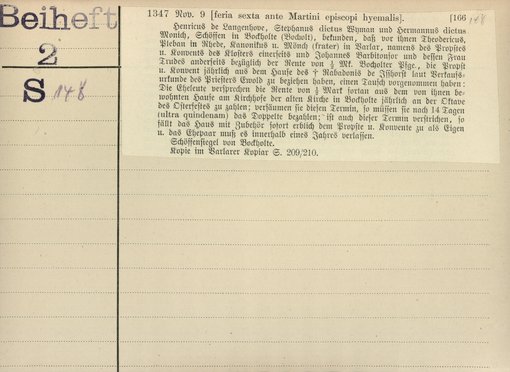 Beiheft
2
S 148
1347 Nov. 9 [feria sexta ante Martini episcopi hyemalis]. [166 148
Henricus de Langenhove, Stephanus dictus Wyman und Hermannus dictus
Monich, Schöffen in Bockholte (Bocholt), bekunden, daß vor ihnen Theodericus,
Pleban in Rhede, Kanonikus u. Mönch (frater) in Varlar, namens des Propstes
u. Konvents des Klosters einerseits und Johannes Barbitonsor und dessen Frau
Trudes anderseits bezüglich der Rente von ½ Mk. Bocholter Pfge., die Propst
u. Konvent jährlich aus dem Hause des † Rabadonis de Isshorst laut Verkaufs-
urkunde des Priesters Ewold zu beziehen haben, einen Tausch vorgenommen haben:
Die Eheleute versprechen die Rente von ½ Mark fortan aus dem von ihnen be-
wohnten Hause am Kirchhofe der alten Kirche in Bockholte jährlich an der Oktave
des Osterfestes zu zahlen; versäumen sie diesen Termin, so müssen sie nach 14 Tagen
(ultra quindenam) das Doppelte bezahlen; ist auch dieser Termin verstrichen, so
fällt das Haus mit Zubehör sofort erblich dem Propste u. Konvente zu als Eigen
u. das Ehepaar muß es innerhalb eines Jahres verlassen.
Schöffensiegel von Bockholte.
Kopie im Varlarer Kopiar S. 209/210.